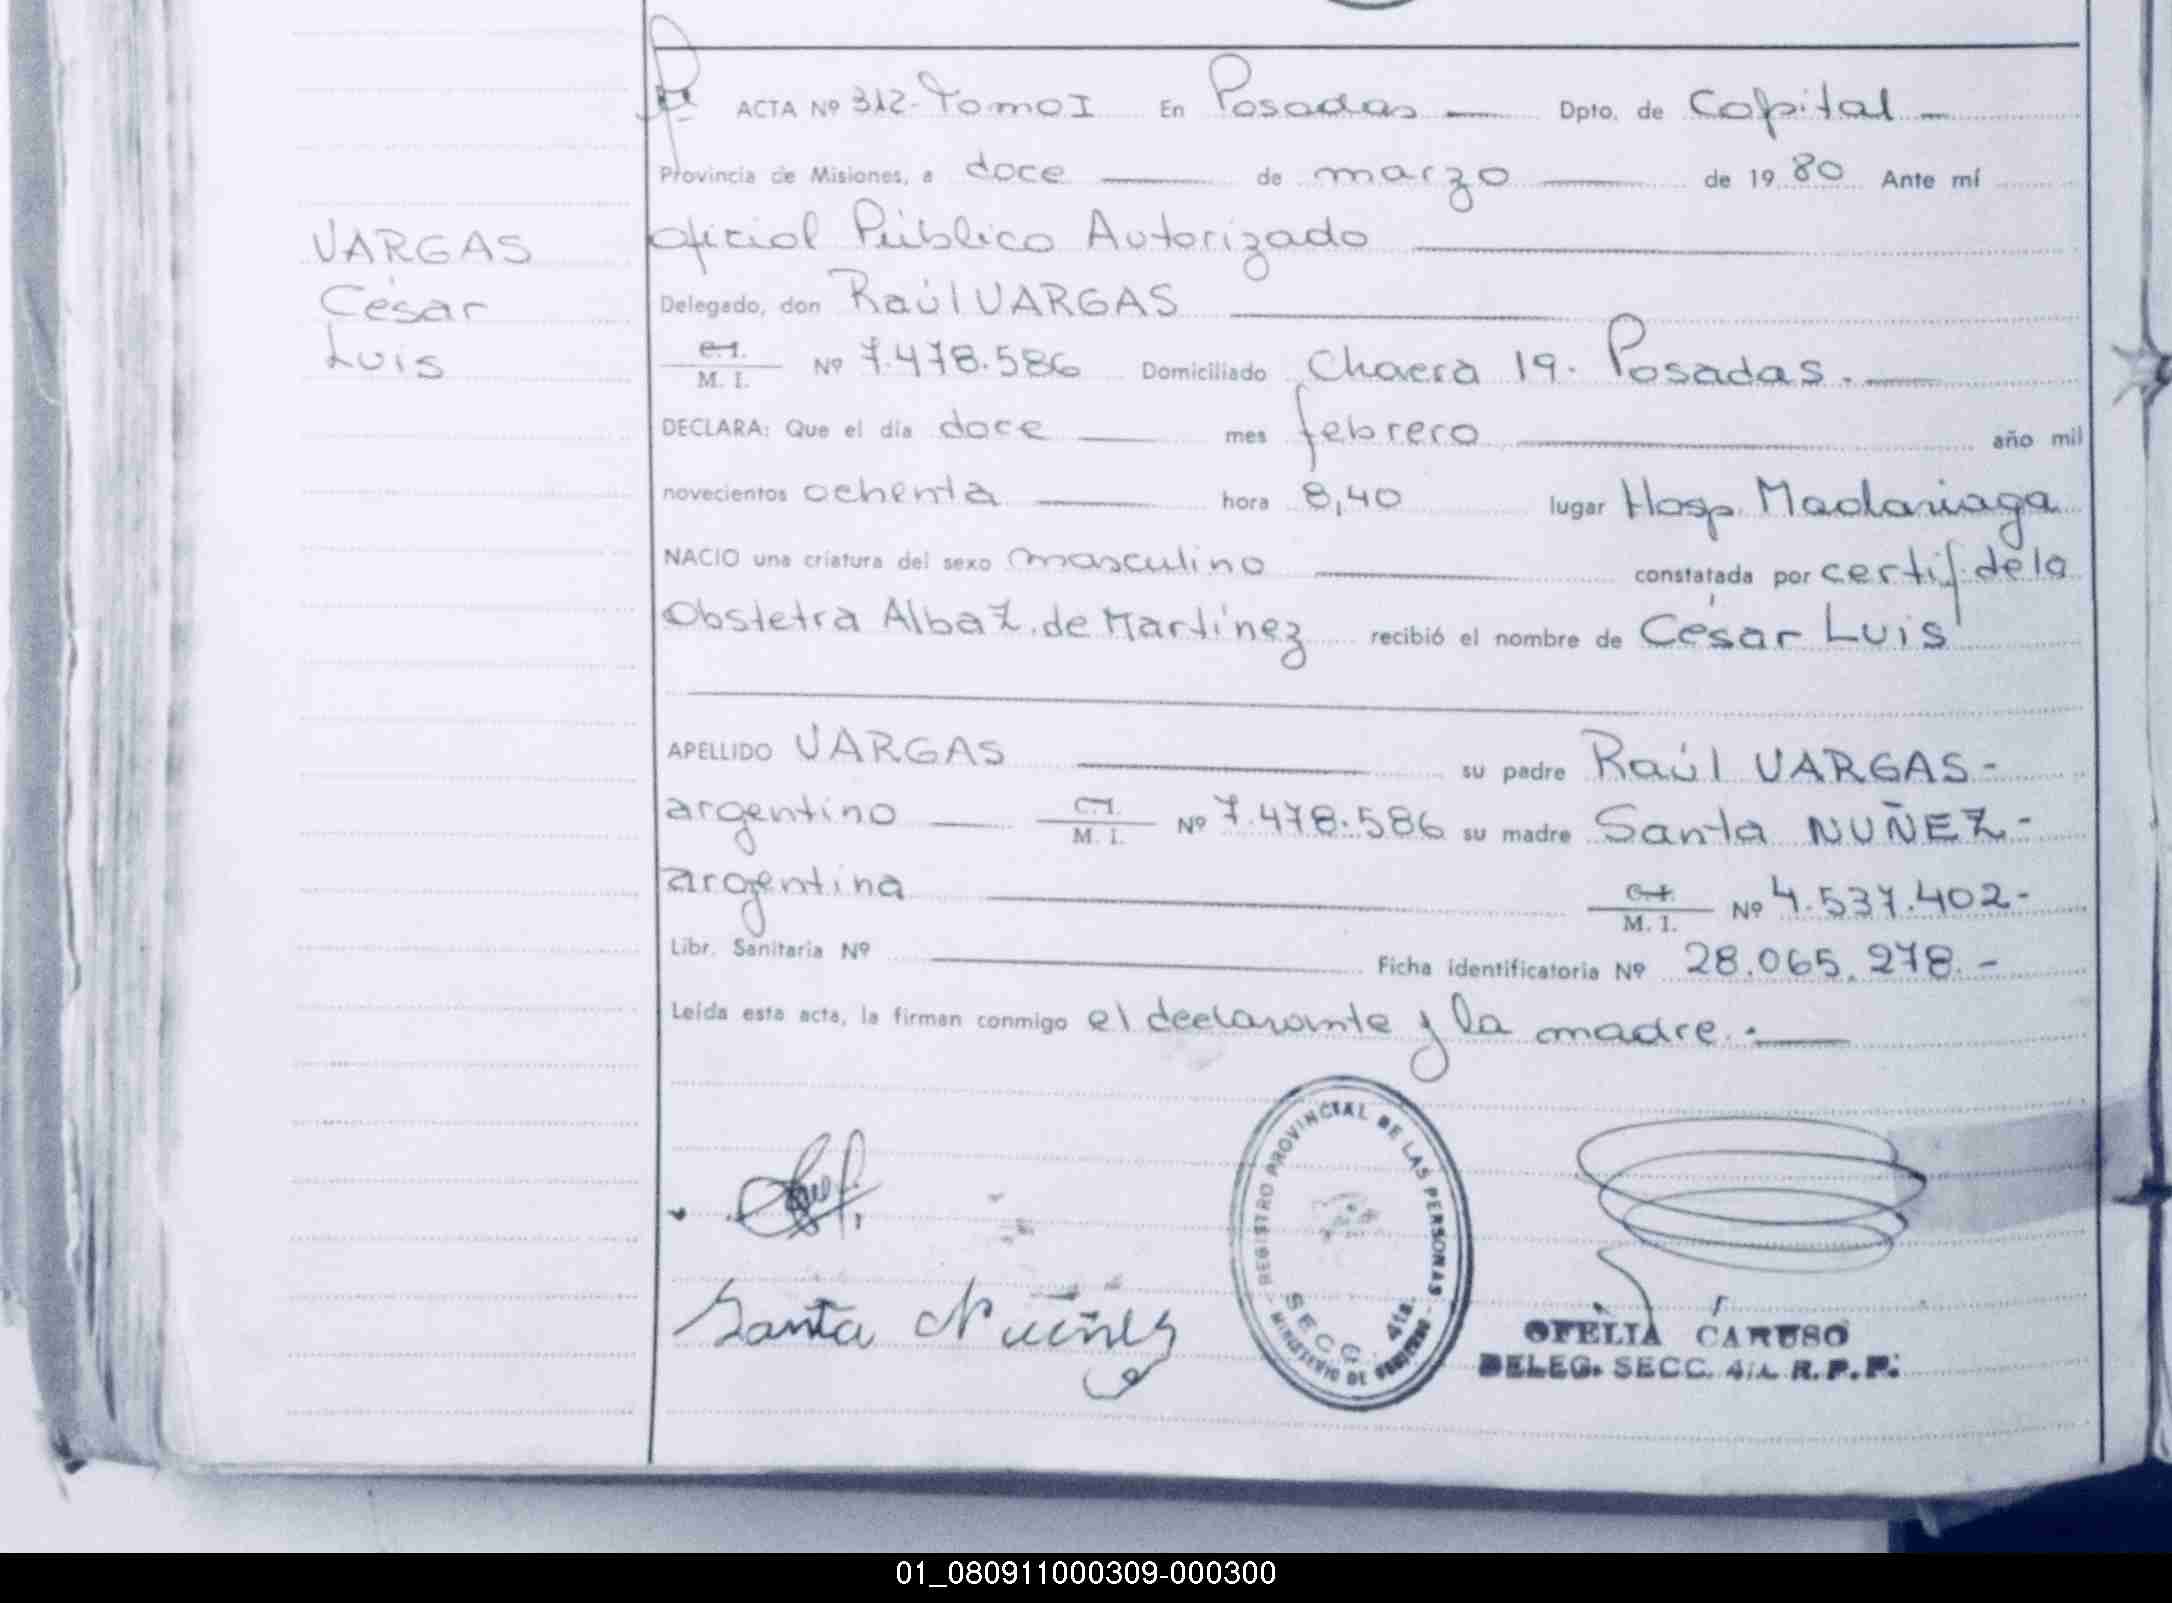 ACTA Nº 312- Tomo I En Posadas Dpto. de Capital
Provincia de Misiones, a doce de marzo de 1980 Ante mí
oficial Público Autorizado
VARGAS
César
Luis
Delegado, don Raúl VARGAS
C.I.
M. I. Nº 7.478.586 Domiciliado Chacra 19. Posadas.
DECLARA: Que el día doce mes febrero año mil
novecientos ochenta hora 8,40 lugar Hosp. Madariaga
NACIO una criatura del sexo masculino constatada por certif. de la
Obstetra Alba Z. de Martínez recibió el nombre de César Luis
APELLIDO VARGAS su padre Raúl VARGAS-
argentino C.I.
M. I. Nº 7.478.586 su madre Santa NUÑEZ-
argentina C.I.
M. I. Nº 4.537.402-
Libr. Sanitaria Nº Ficha identificatoria Nº 28.065.278.-
Leída esta acta, la firman conmigo el declarante y la madre.-
REGISTRO PROVINCIAL DE LAS PERSONAS
SECC. 4ta.
MINISTERIO DE GOBIERNO
Santa Nuñez
OFELIA CARUSO
DELEG. SECC. 4ta. R.P.P.
01_080911000309-000300